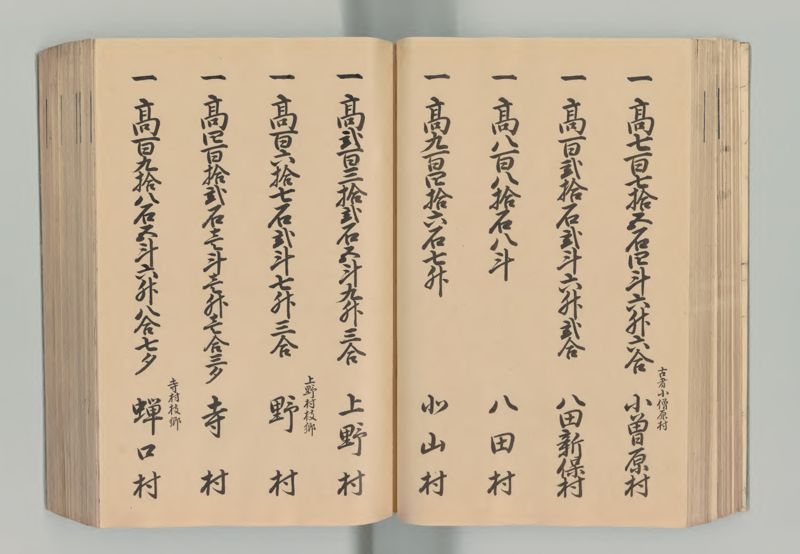 一 高七百七拾五石四斗六升六合
古者小僧原村
小曽原村
一 高百弐拾石弐斗六升弐合
八田新保村
一 高八百八拾石八斗
八田村
一 高九百四拾六石七升
小山村
一 高弐百三拾弐石五斗九升三合
上野村
一 高百六拾七石弐斗七升三合
上野村枝郷
野村
一 高四百拾弐石壱斗壱升壱合三夕
寺村
一 高百九拾八石五斗六升八合七夕
寺村枝郷
蝉口村